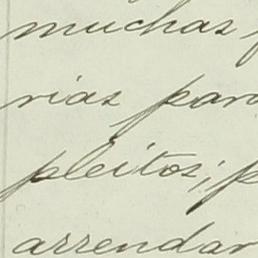 muchas
rias para
pleitos; p
arrendar